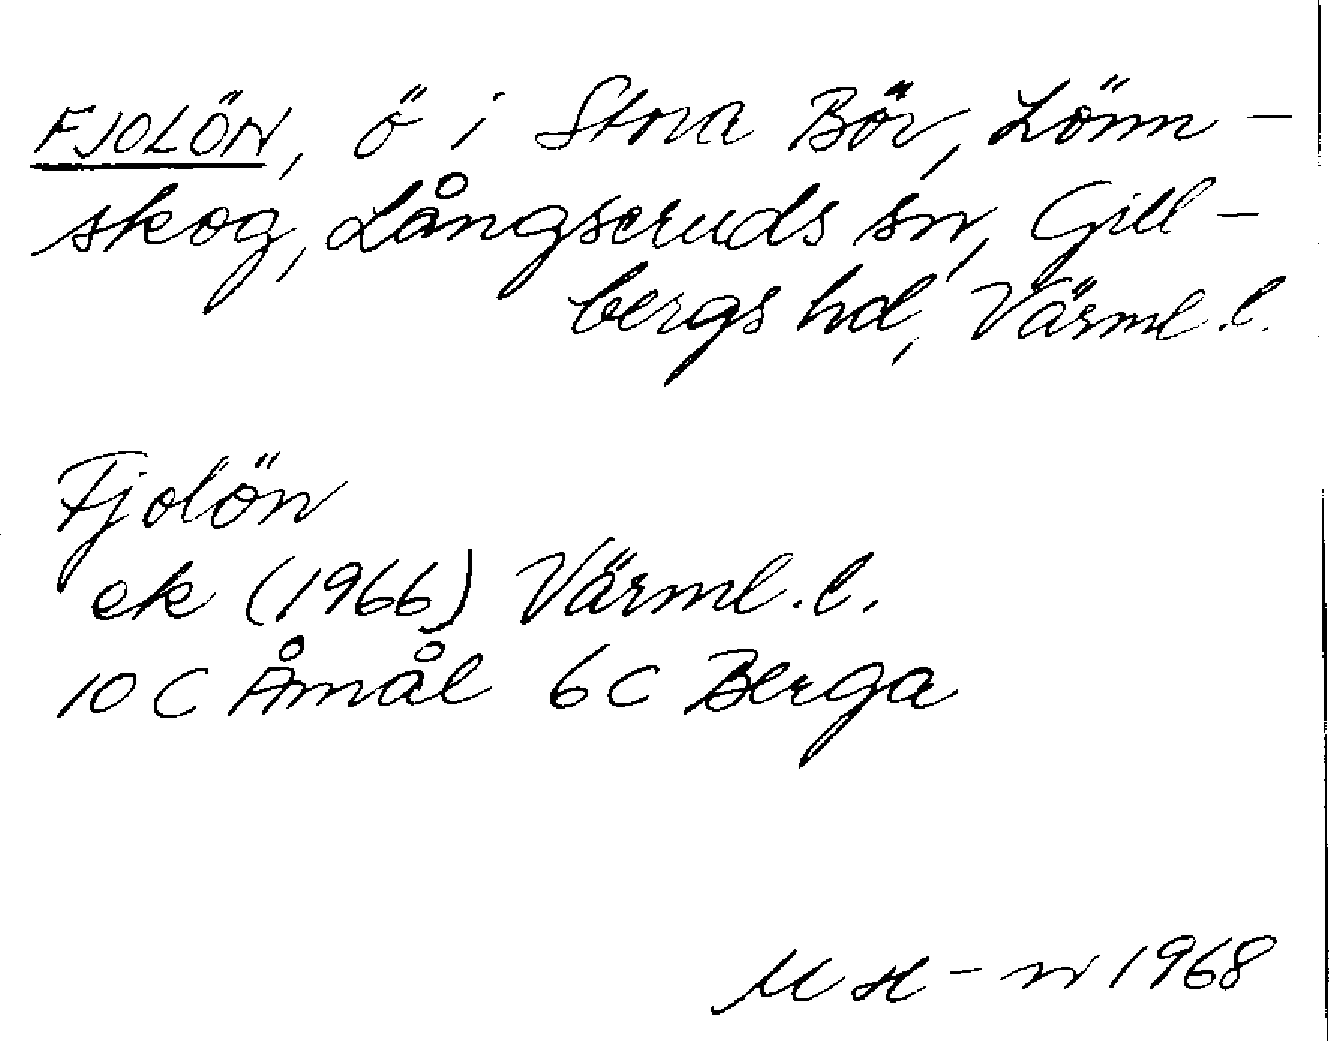 FJOLÖN, ö i Stora Bör, Lönn-
skog, Långseruds sn, Gill-
bergs hd, Värml. l.
Fjolön
ek (1966) Värml. l.
10 C Åmål 6 C Berga
M H-n 1968